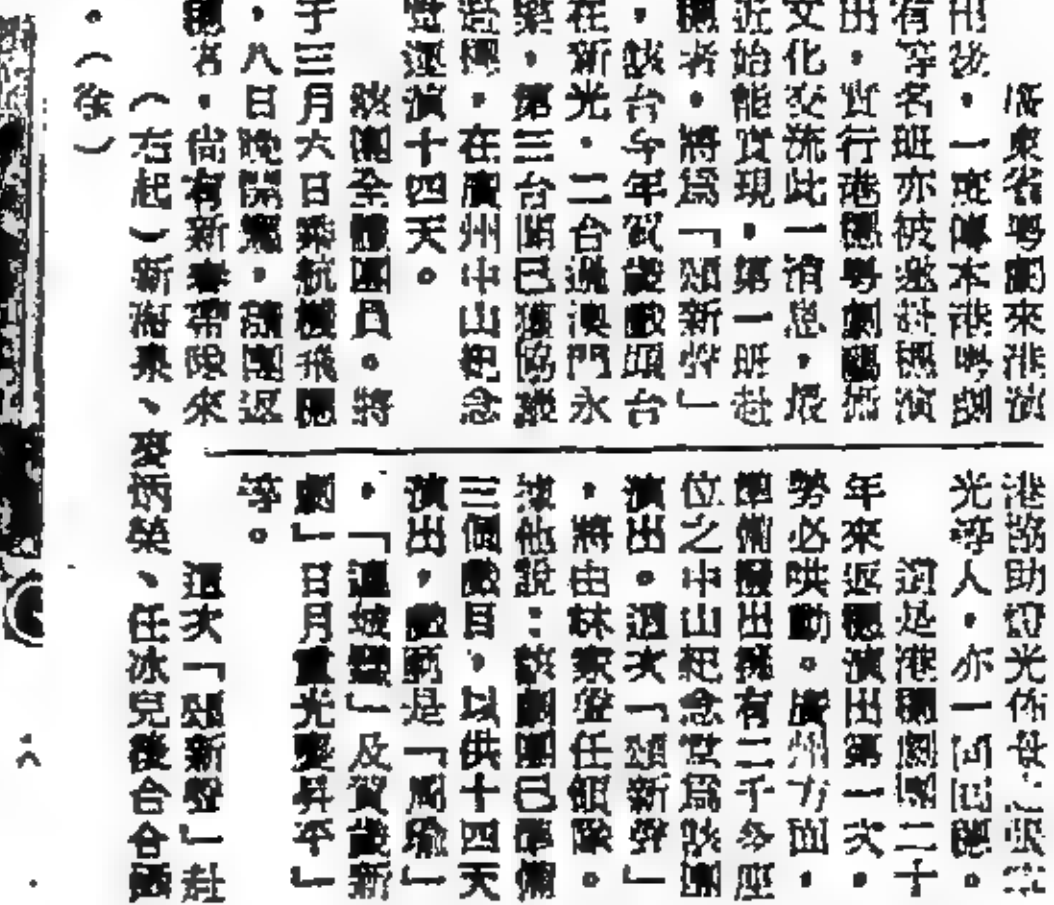 廣東省粵劇來港演
出後，一度傳本港粵劇
有等名班亦被邀赴穗演
出，實行港穗粵劇
文化交流此一消息，最
近始能實現，第一班赴
穗者，將爲「頌新聲」
，該台今年賀歲戲頭台
在新光，二台過澳門永
樂，第三台
穗，在廣州中山紀念
堂連演十四天。
該團全體團員。將
于三月六日乘航機飛
，八日晚開鑼，
穗者，尚有新
港
光等人，亦一同回穗。
這是港穗劇團二十
年來返穗演出第一次，
勢必哄動。廣州方面，
準備撥出擁有二千多座
位之中山紀念堂爲該團
演出。這次「頌新聲」
，將由林家聲任領隊。
據他說：該劇團已準備
三個戲目，以供十四天
演出，
是「周瑜」
，「連城璧」及賀歲新
劇」日月重光慶昇平」
等。
這次「頌新聲」赴
（右起）新海泉、麥炳榮、任冰兒後合合
。（徐）